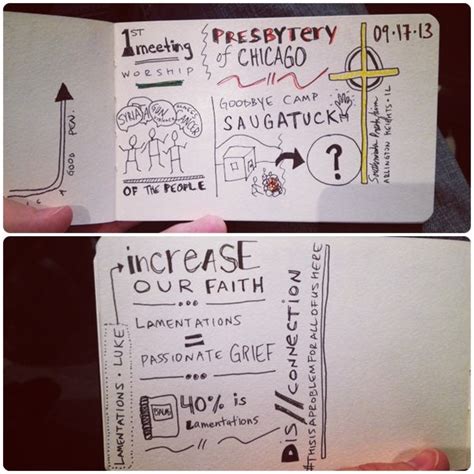 1ST
meeting
WORSHIP
SYRIA
GUN
CANCER
OF THE PEOPLE
GOOD POW.
PRESBYTERY
of CHICAGO
GOODBYE CAMP
SAUGATUCK
?
09.17.13
ARLINGTON HEIGHTS • IL
increase
OUR FAITH
LAMENTATIONS
=
PASSIONATE GRIEF
40% is
Lamentations
LAMENTATIONS • LUKE
DIS//CONNECTION
#THISISAPROBLEMFORALLOFUSHERE